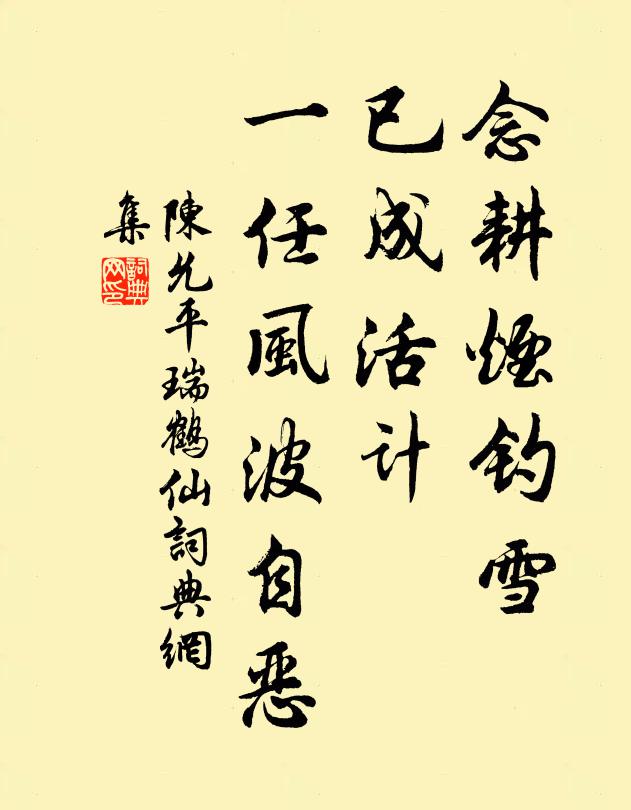 念耕煙钓雪
已成活计
一任風波自恶
陳允平瑞鶴仙詞典網
集
詞典
网印